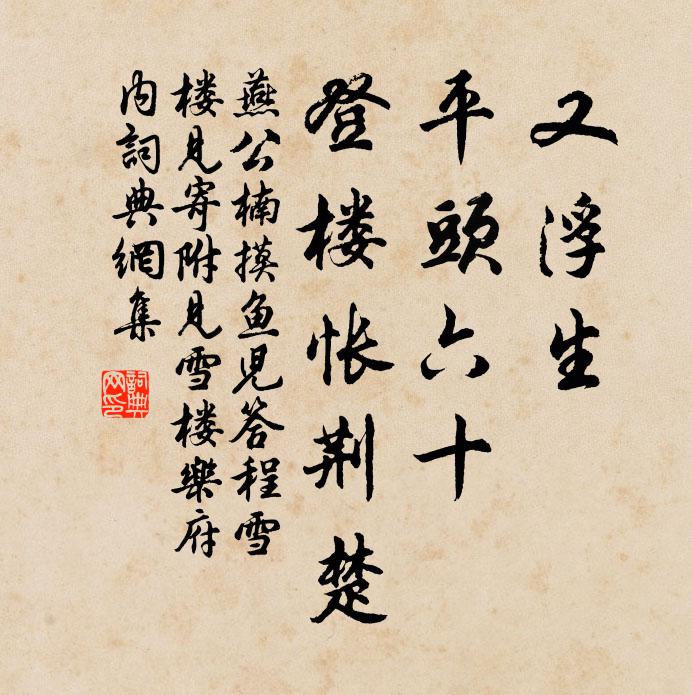 又浮生
平頭六十
登楼怅荆楚
燕公楠摸鱼児答程雪
楼見寄附見雪楼樂府
内詞典網集
詞典网印